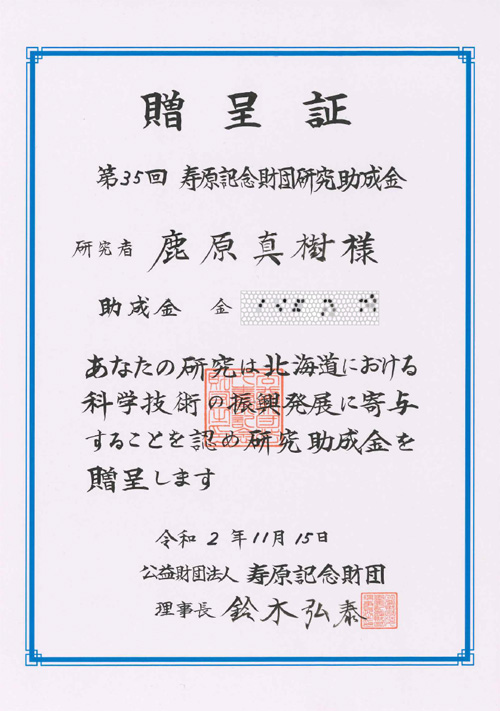 贈呈証
第35回 寿原記念財団研究助成金
研究者 鹿原真樹様
助成金 金
あなたの研究は北海道における
科学技術の振興発展に寄与
することを認め研究助成金を
贈呈します
令和2年11月15日
公益財団法人 寿原記念財団
理事長 鈴木弘泰